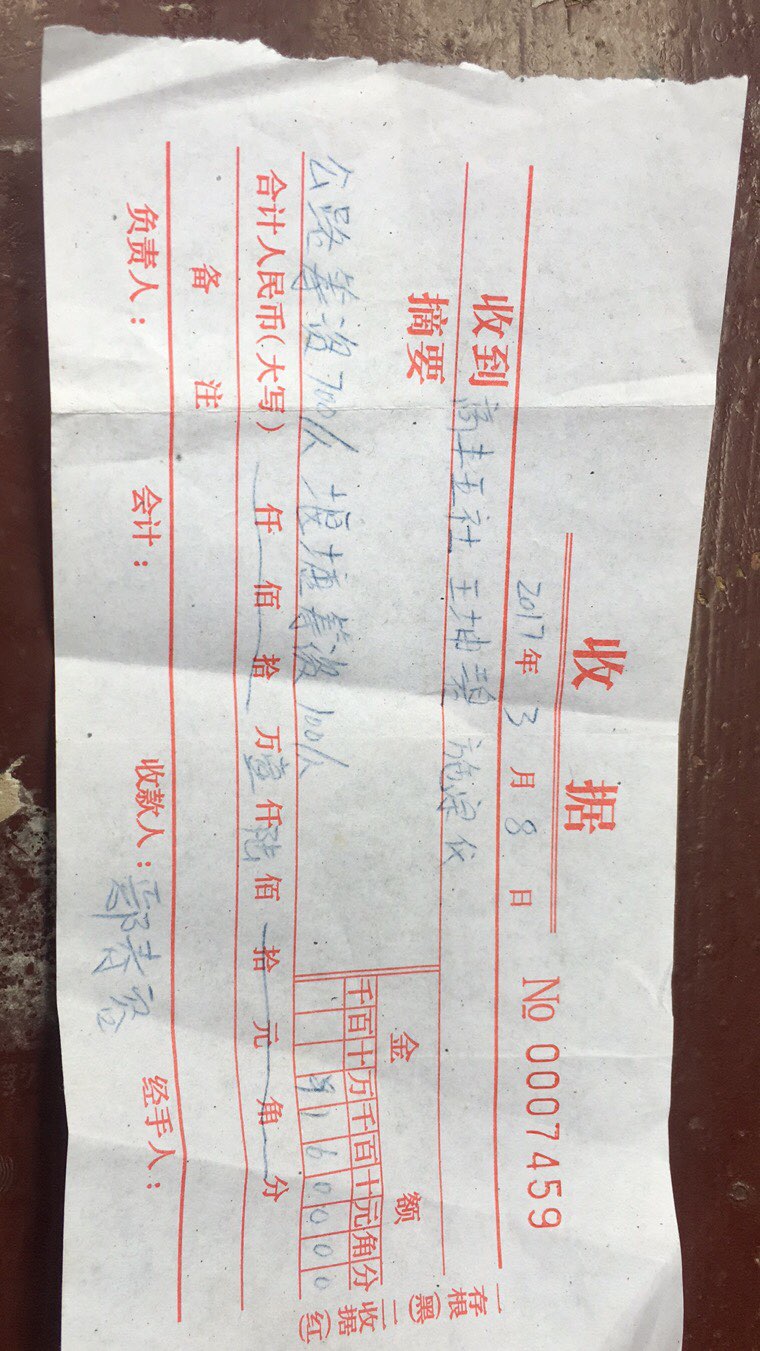 收据
2017年3月8日 No 0007459
收到 五社 王坤 施
摘要 金额
千百十万千百十元角分
公路筹资700/人 堰埂筹资100/人 ¥160000
合计人民币(大写) 仟 佰 拾 万壹仟陆佰 拾 元 角 分
备注
负责人: 会计: 收款人: 鄢 经手人:
一存根(黑) 二收据(红)